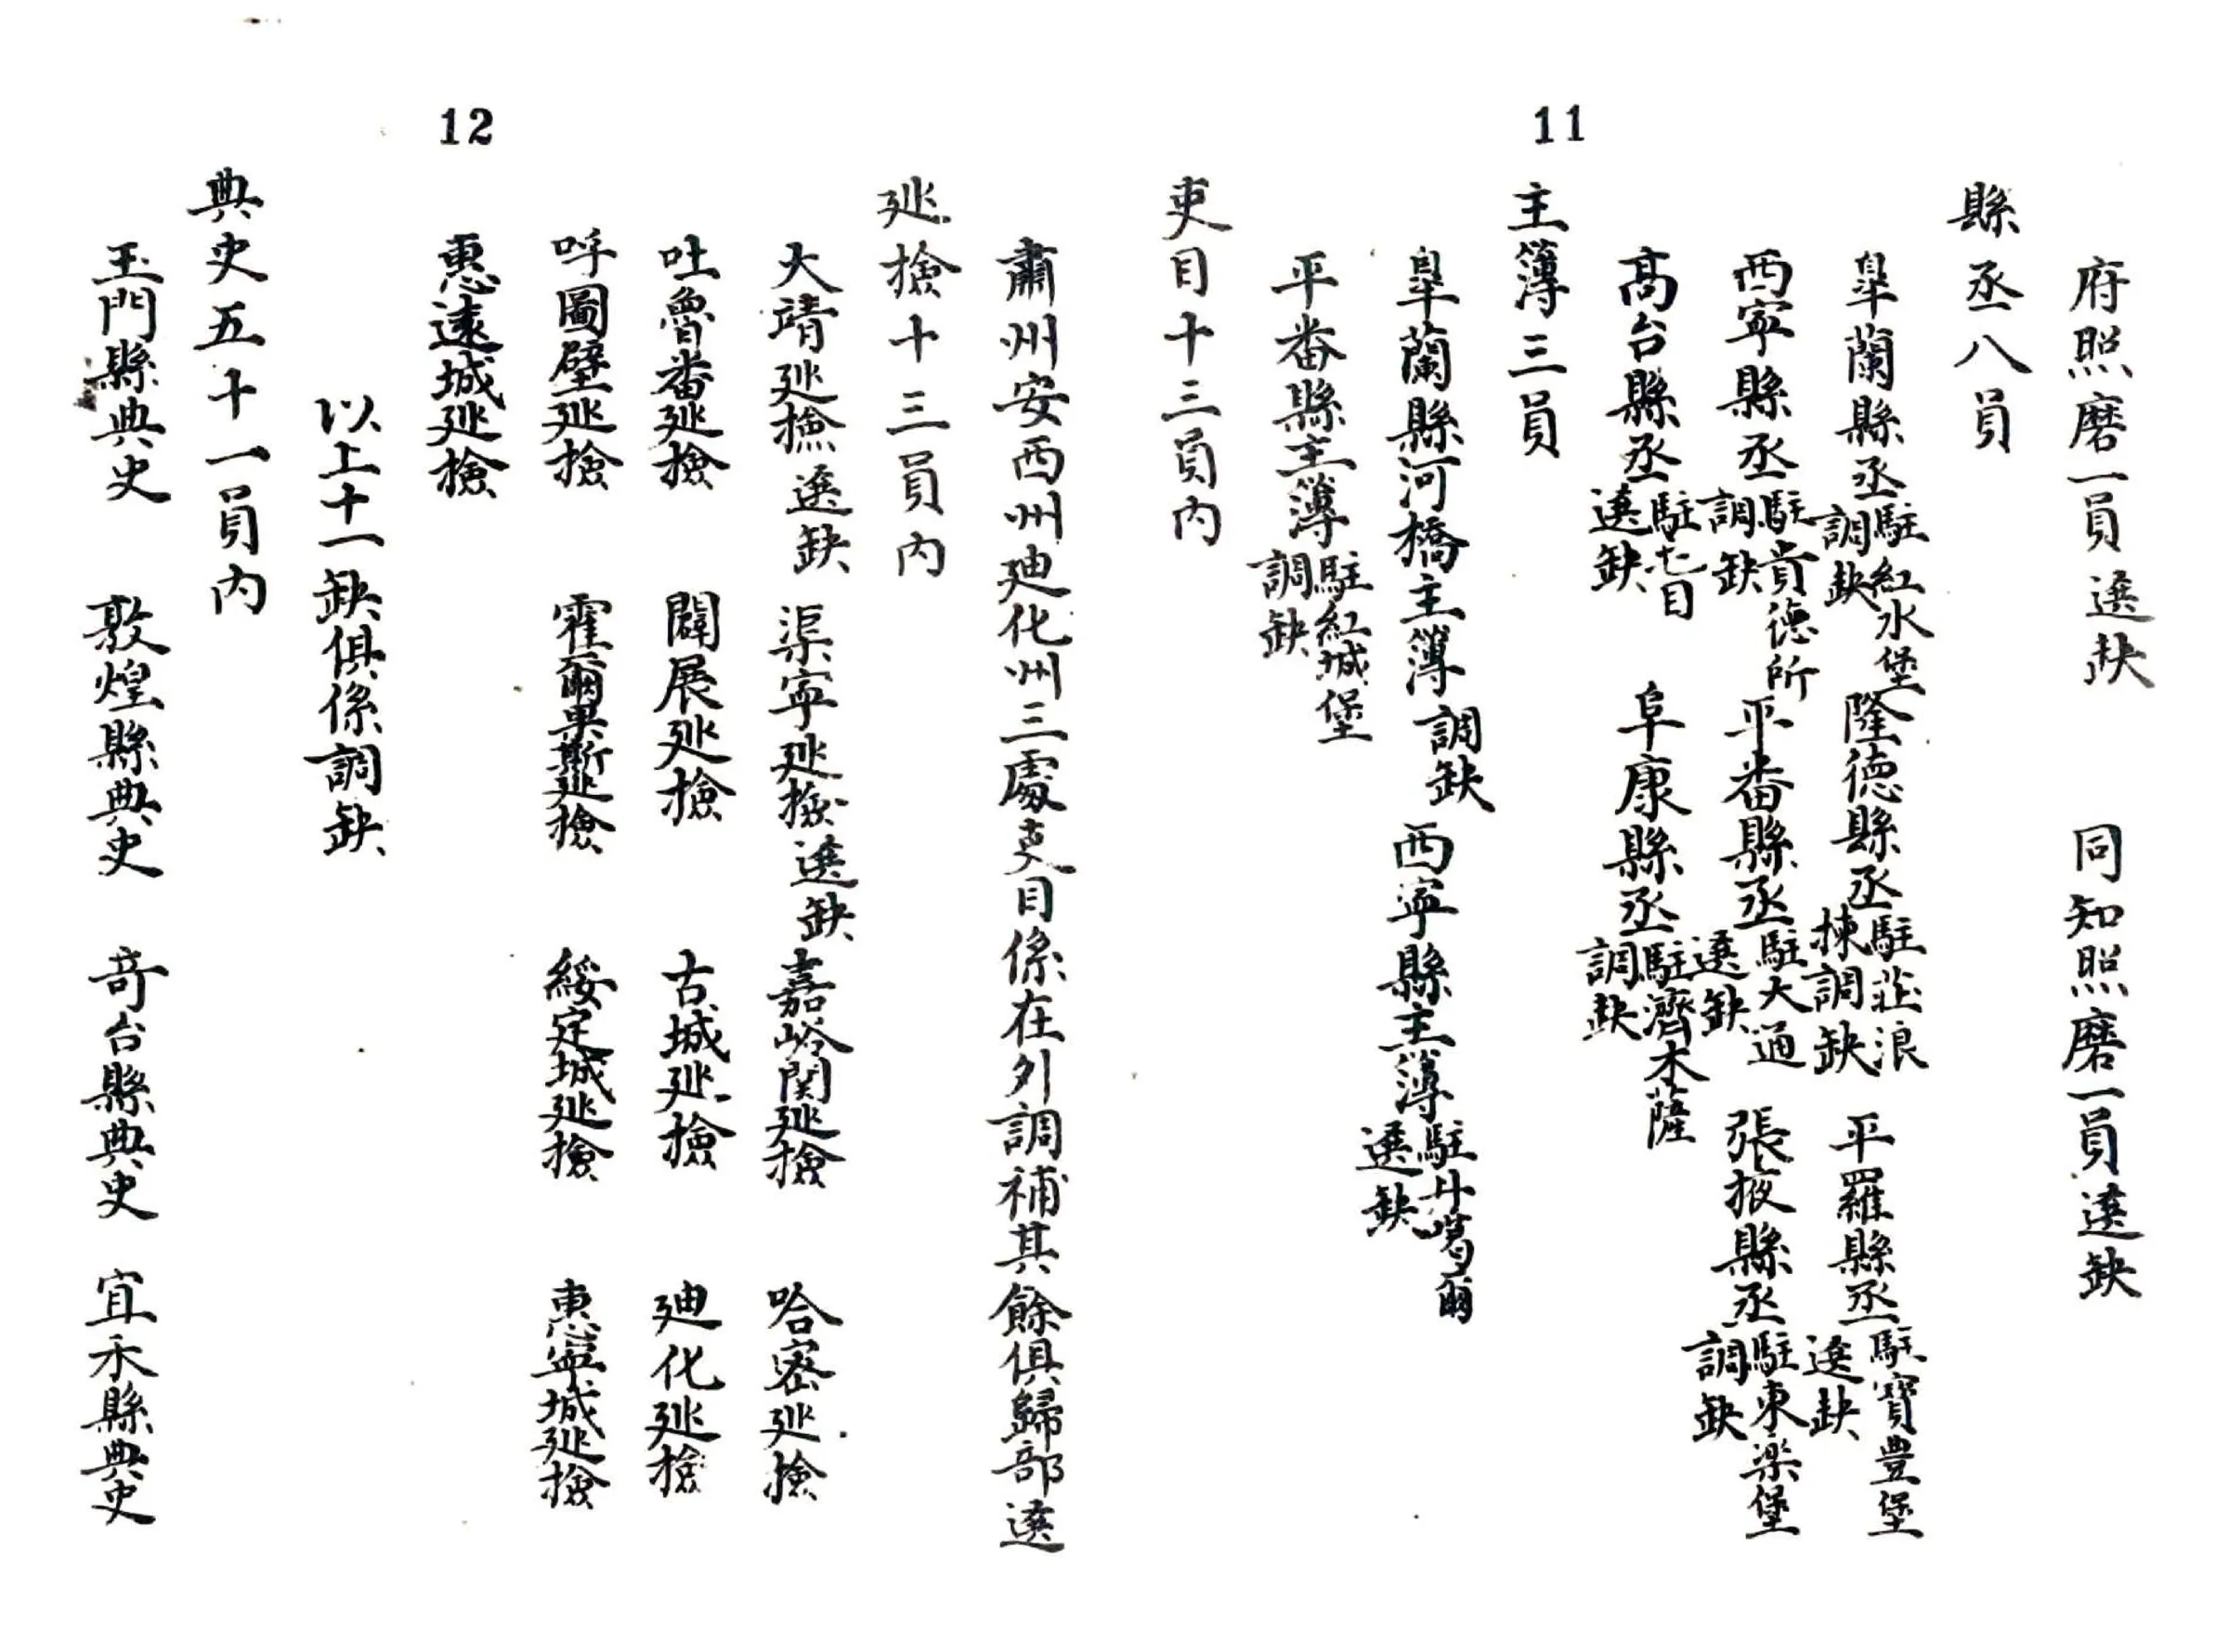 11
府照磨一員選缺 同知照磨一員選缺
縣丞八員
皋蘭縣丞駐紅水堡調缺 隆德縣丞駐莊浪揀調缺 平羅縣丞駐寶豊堡選缺
西寧縣丞駐貴德所調缺 平番縣丞駐大通選缺 張掖縣丞駐東樂堡調缺
髙台縣丞駐七目選缺 阜康縣丞駐濟木薩調缺
主簿三員
皋蘭縣河橋主簿調缺 西寧縣主簿駐丹噶爾選缺
平番縣主簿駐紅城堡調缺
吏目十三員内
肅州安西州廸化州三處吏目係在外調補其餘俱歸部選
12
廵撿十三員内
大靖廵撿選缺 渠寧廵撿選缺 嘉峪関廵撿 哈密廵撿
吐魯番廵撿 闢展廵撿 古城廵撿 廸化廵撿
呼圖壁廵撿 霍爾果斯廵撿 綏定城廵撿 惠寧城廵撿
惠遠城廵撿
以上十一缺俱係調缺
典史五十一員内
玉門縣典史 敦煌縣典史 竒台縣典史 宜禾縣典史